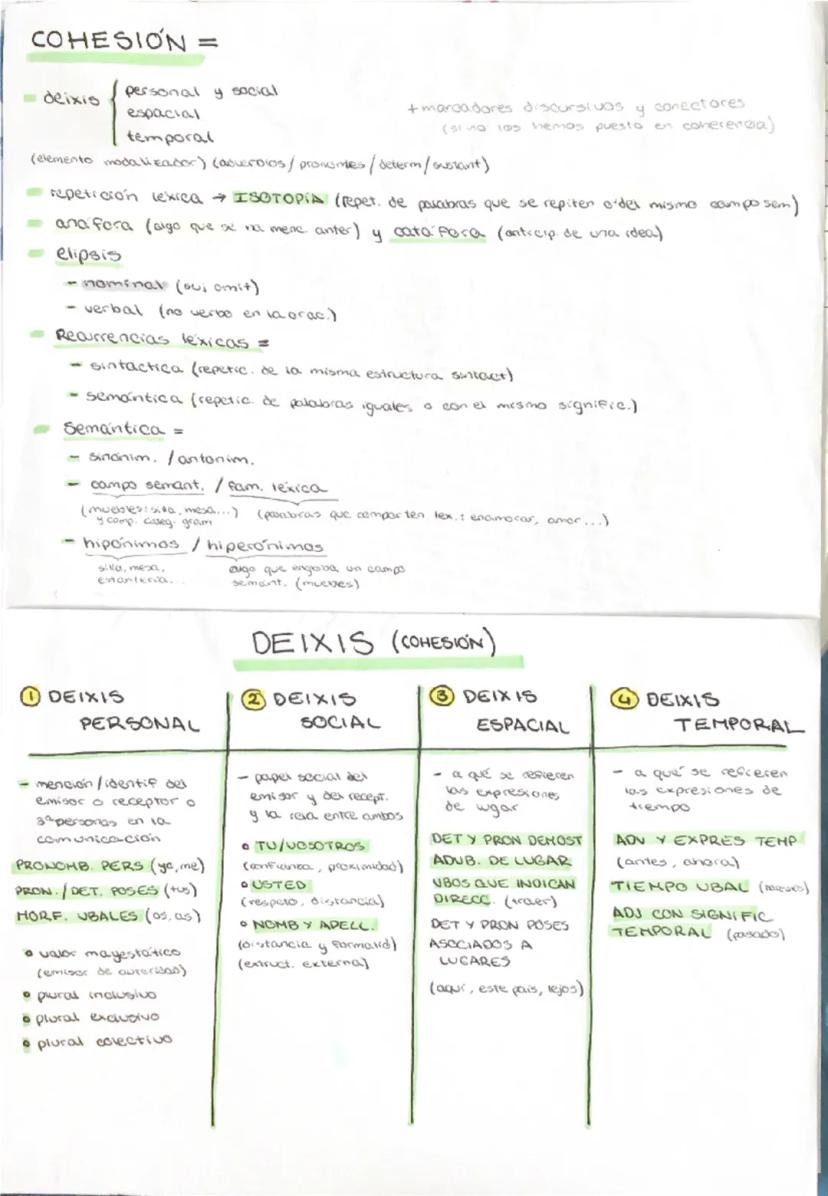 COHESIÓN =
deixis { personal y social
espacial
temporal
+ marcadores discursivos y conectores
(si no los hemos puesto en coherencia)
(elemento modalizador) (adverbios / pronombres / determ / sustant)
repetición léxica → ISOTOPÍA (repet. de palabras que se repiten o del mismo campo sem)
anáfora (algo que se ha menc. anter) y catáfora (anticip. de una idea)
elipsis
- nominal (suj omit)
- verbal (no verbo en la orac.)
Recurrencias léxicas =
- sintáctica (repetic. de la misma estructura sintact)
- semántica (repetic. de palabras iguales o con el mismo signific.)
Semántica =
- sinónim. / antonim.
- campo semant. / fam. léxica
(muebles: silla, mesa...) (palabras que comparten lex.: enamorar, amor...)
y comp. categ. gram
- hipónimos / hiperónimos
silla, mesa, algo que engloba un campo
estantería... semant. (muebles)
DEIXIS (COHESIÓN)
① DEIXIS
PERSONAL
- mención / identif del
emisor o receptor o
3ª personas en la
comunicación
PRONOMB. PERS (yo, me)
PRON. / DET. POSES (tus)
MORF. VBALES (os, as)
valor mayestático
(emisor de autoridad)
plural inclusivo
plural exclusivo
plural colectivo
② DEIXIS
SOCIAL
- papel social del
emisor y del recept.
y la rela entre ambos
TU/VOSOTROS
(confianza, proximidad)
USTED
(respeto, distancia)
NOMB Y APELL.
(distancia y formalid)
(estruct. externa)
③ DEIXIS
ESPACIAL
- a qué se refieren
las expresiones
de lugar
DET Y PRON DEMOST
ADVB. DE LUGAR
VBOS QUE INDICAN
DIRECC. (traer)
DET Y PRON POSES
ASOCIADOS A
LUGARES
(aquí, este país, lejos)
④ DEIXIS
TEMPORAL
- a qué se refieren
las expresiones de
tiempo
ADV Y EXPRES TEMP
(antes, ahora)
TIEMPO VBAL
ADJ CON SIGNIFIC
TEMPORAL (pasado)